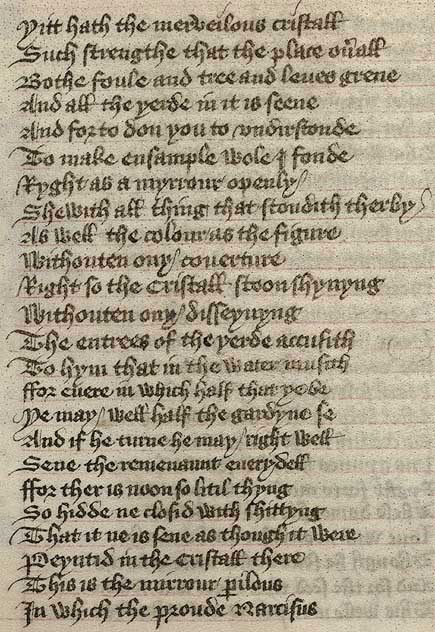 Yitt hath the merveilous cristall
Such strengthe that the place oūall
Bothe foule and tree and leues grene
And all the yerde in it is seene
And forto don you to vndirstonde
To make ensample wole I fonde
Ryght as a myrrour openly
Shewith all thing that stondith therby
As well the colour as the figure
Withouten ony couerture
Right so the Cristall stoon shynyng
Withouten ony disseyuyng
The entrees of the yerde accusith
To hym that in the water musith
ffor euere in which half that ye be
Ye may well half the gardyne se
And if he turne he may right well
Sene the remenaunt euerydell
ffor ther is noon so litil thyng
So hidde ne closid with shittyng
That it ne is sene as though it were
Peyntid in the Cristall there
This is the mirrour ꝑilous
In which the proude Narcisus